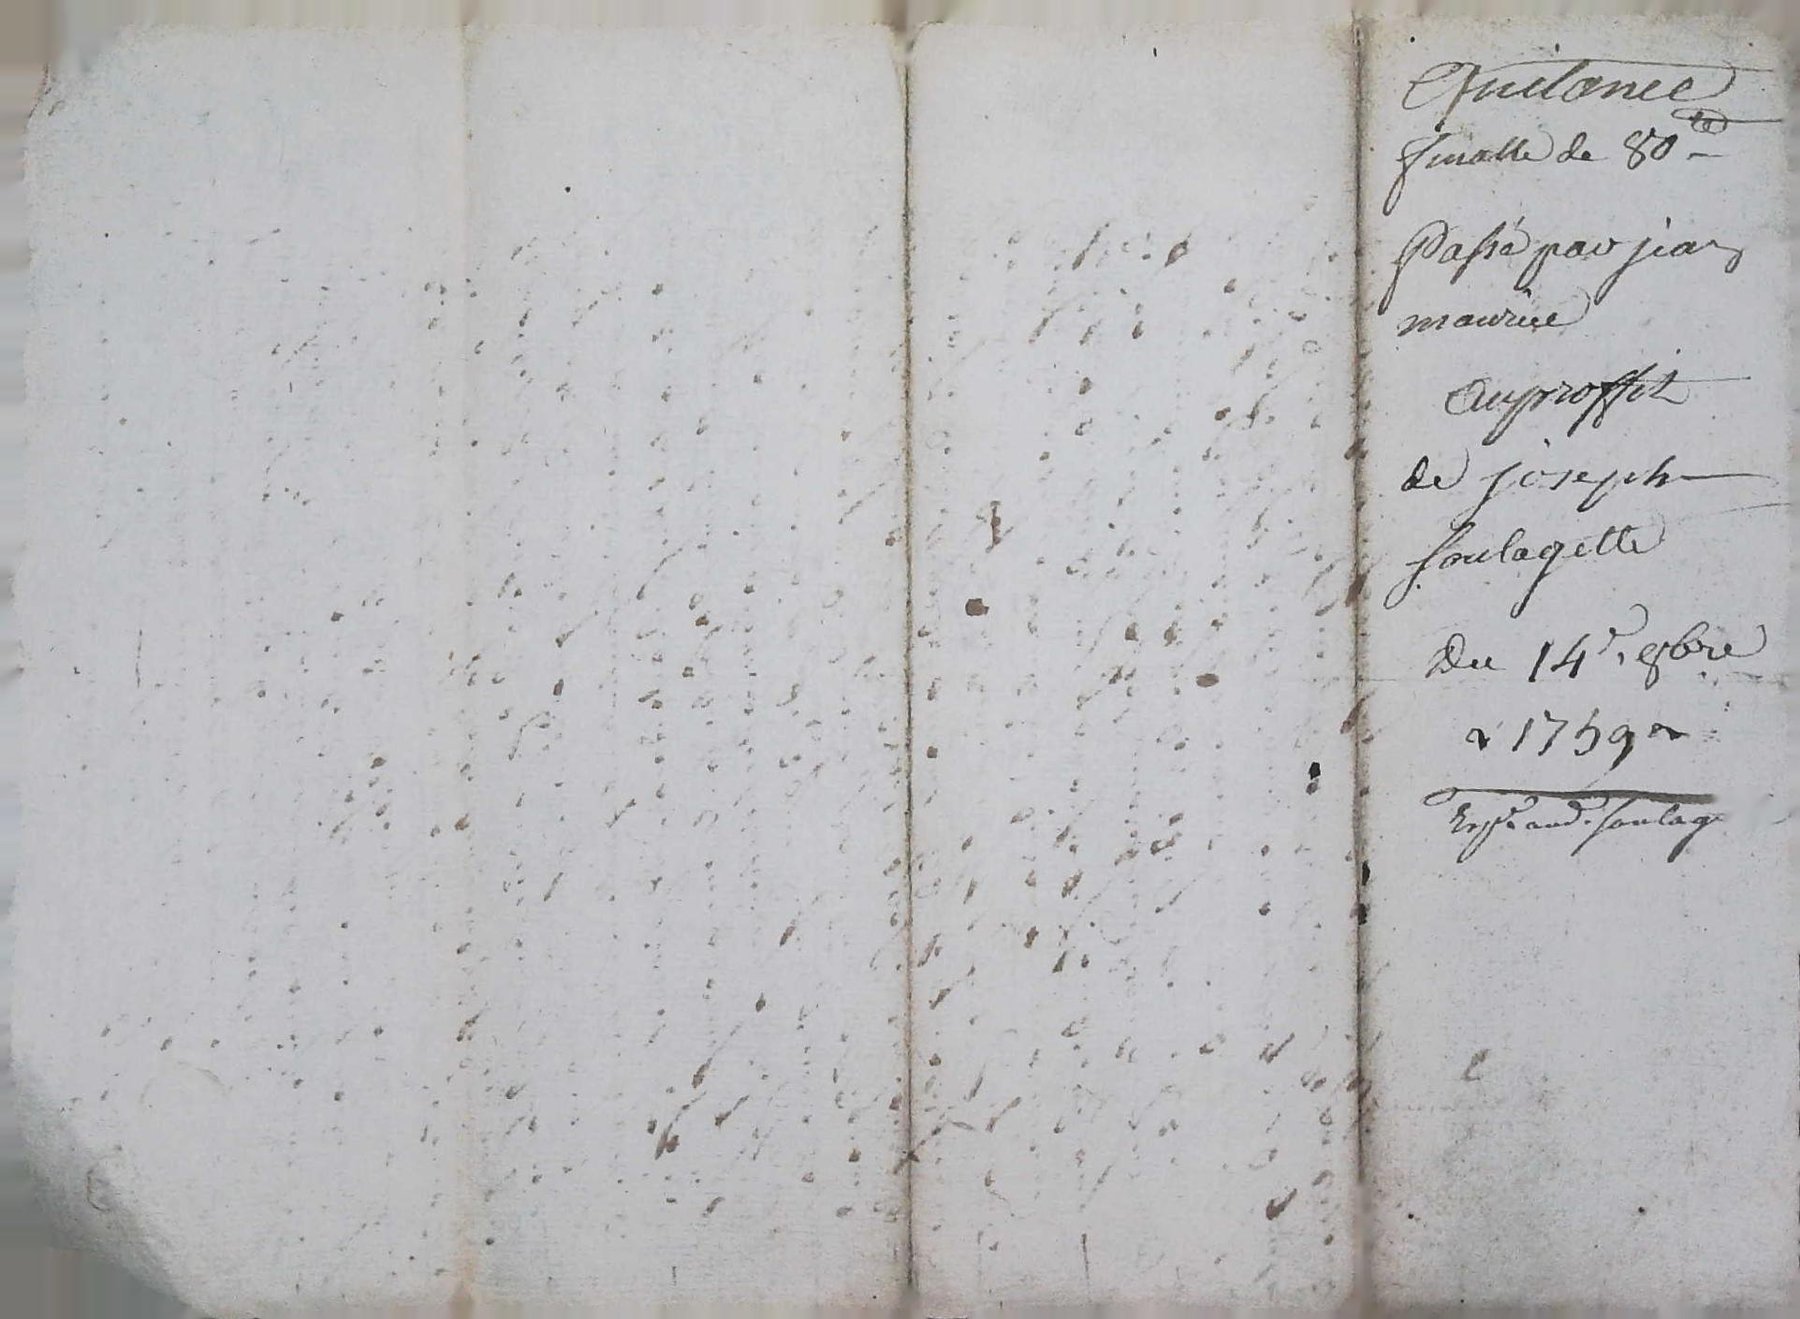 Quitance
finalle de 80 ^tt
Passé par jean
maurice
au proffit
de joseph
soulagette
Du 14e, 8bre
1759
Exp.d and. soulag